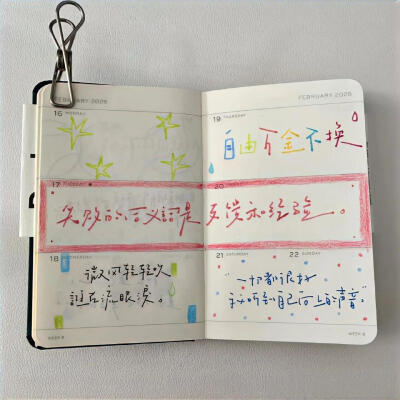 FEBRUARY 2026
16 MONDAY
17 TUESDAY
18 WEDNESDAY
微风轻轻吹
誰在流眼淚。
FEBRUARY 2026
19 THURSDAY
自由万金不换
20
失败的含义就是反馈和经验。
21 SATURDAY
22 SUNDAY
"一切都很好
我听到自己向上的声音"
WEEK 8